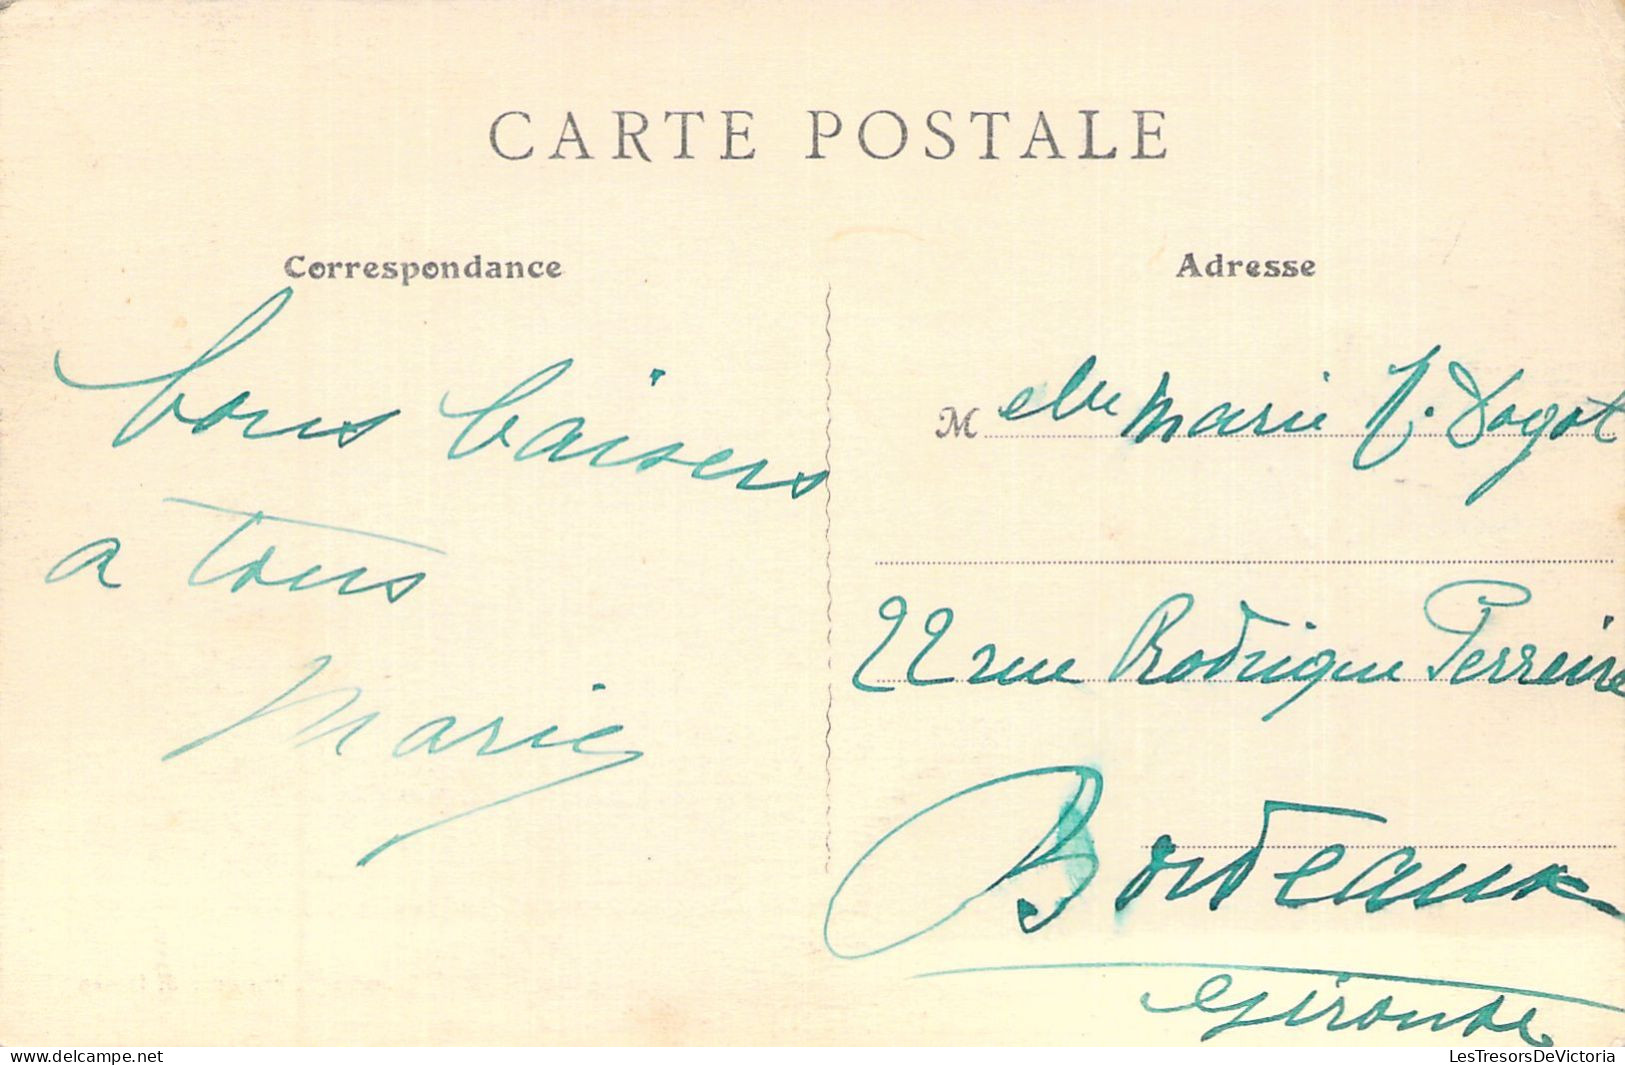 CARTE POSTALE
Correspondance
bons baisers
a tous
Marie
Adresse
Melle Marie J. Dogot
22 rue Rodrigue Perreire
Bordeaux
Gironde
LesTresorsDeVictoria